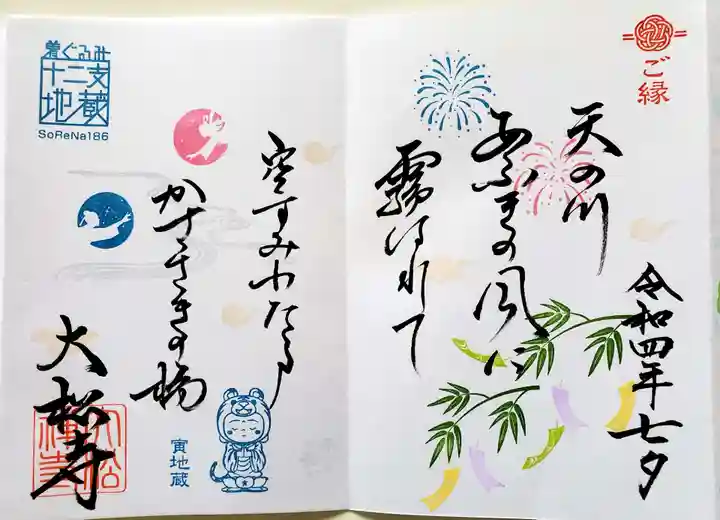 ご縁
天の川
あふぎの風に
霧はれて
令和四年七夕
空すみわたる
かささきの橋
大松寺
着ぐるみ
十二支
地蔵
SoReNa186
寅地蔵